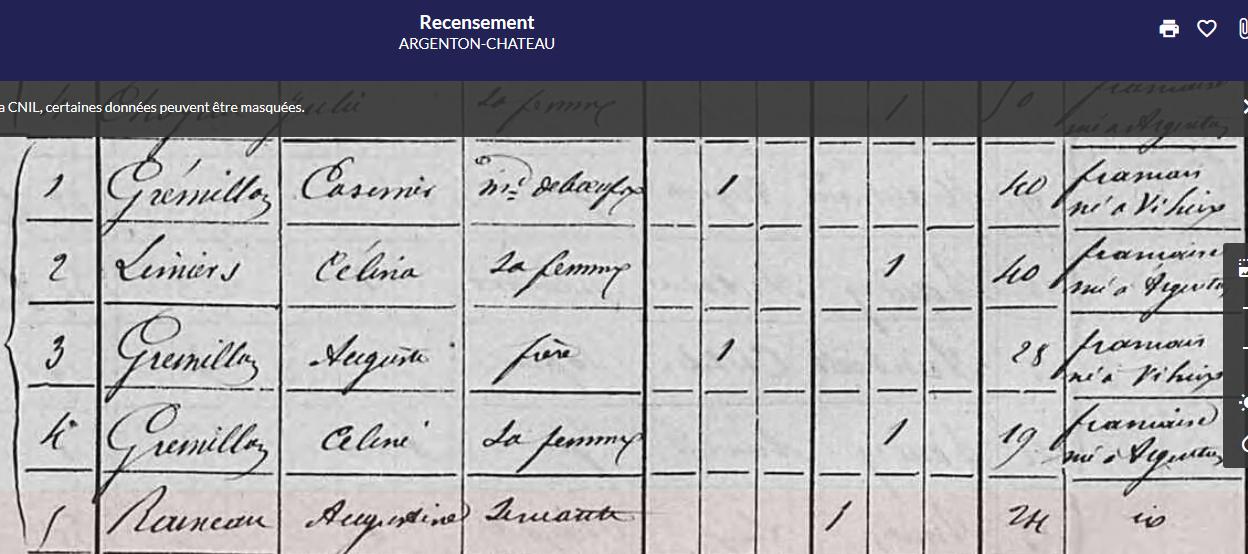 Recensement
ARGENTON-CHATEAU
a CNIL, certaines données peuvent être masquées.
Julie La femme 1 50 française
né à Argenton
1 Grémillon Casemir md de bœufs 1 40 français
né à Vihiers
2 Limiers Célina La femme 1 40 française
né à Argenton
3 Gremillon Auguste frère 1 28 français
né à Vihiers
4 Gremillon Celine La femme 1 19 française
né à Argenton
5 Augustine Servante 1 24 io